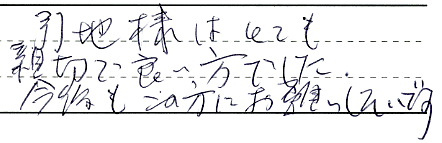 引地様はとても
親切で良い方でした.
今後もこの方にお願いしたいです